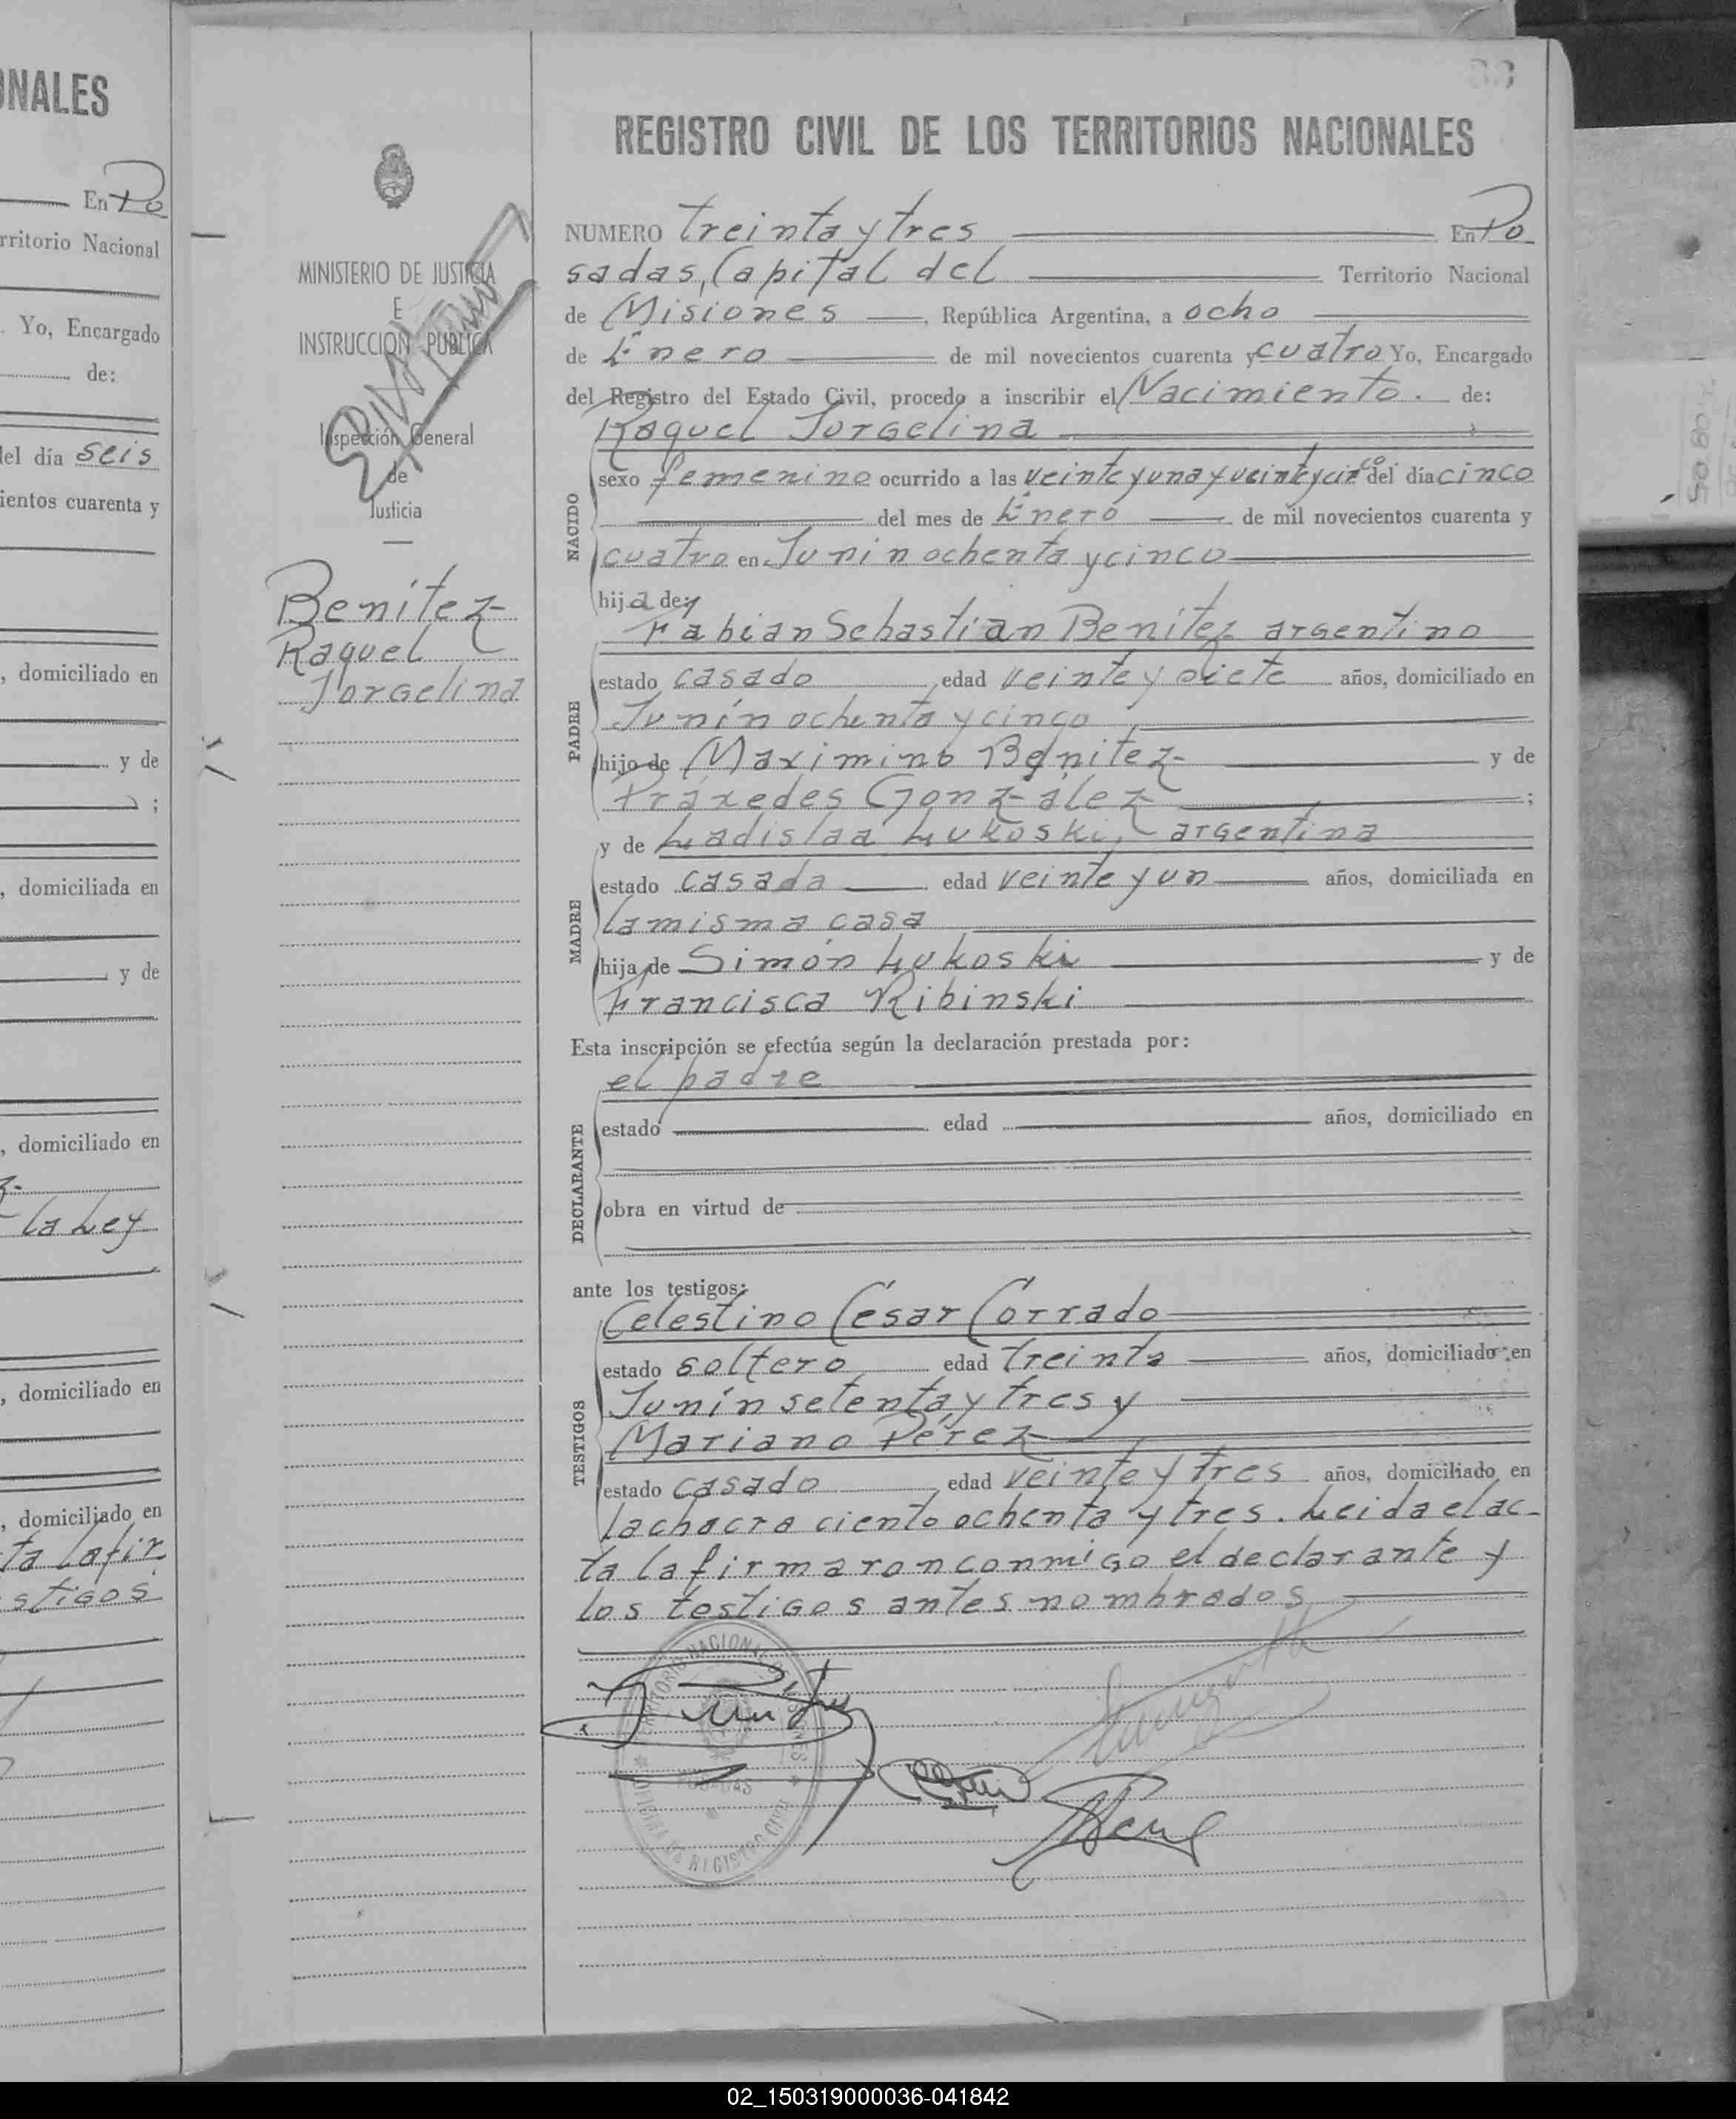 ONALES
En Po
rritorio Nacional
. Yo, Encargado
de:
del día seis
ientos cuarenta y
, domiciliado en
y de
;
, domiciliada en
y de
, domiciliado en
z-
la Ley
, domiciliado en
, domiciliado en
ta la fir
stigos
MINISTERIO DE JUSTICIA
E
INSTRUCCION PUBLICA
Inspección General
de
Justicia
Benitez
Raquel
Jorgelina
33
REGISTRO CIVIL DE LOS TERRITORIOS NACIONALES
NUMERO treinta y tres En Po
sadas, Capital del Territorio Nacional
de Misiones , República Argentina, a ocho
de Enero de mil novecientos cuarenta y cuatro Yo, Encargado
del Registro del Estado Civil, procedo a inscribir el Nacimiento. de:
Raquel Jorgelina
NACIDO
sexo femenino ocurrido a las veinte y una y veinte y cinco del día cinco
del mes de Enero de mil novecientos cuarenta y
cuatro en Junin ochenta y cinco
hija de:
PADRE
Fabian Sebastian Benitez argentino
estado casado , edad veinte y siete años, domiciliado en
Junín ochenta y cinco
hijo de Maximino Benitez y de
Práxedes González ;
MADRE
y de Ladislaa Lukoski, argentina
estado casada edad veinte y un años, domiciliada en
la misma casa
hija de Simón Lukoski y de
Francisca Ribinski
Esta inscripción se efectúa según la declaración prestada por:
el padre
DECLARANTE
estado edad años, domiciliado en
obra en virtud de
ante los testigos:
TESTIGOS
Celestino César Corrado
estado soltero edad treinta años, domiciliado en
Junín setenta y tres y
Mariano Pérez
estado casado , edad veinte y tres años, domiciliado en
la chacra ciento ochenta y tres. Leida el ac-
ta la firmaron conmigo el declarante y
los testigos antes nombrados
TERRITORIO NACIONAL DE MISIONES
POSADAS
OFICINA DE REGISTRO CIVIL
02_150319000036-041842